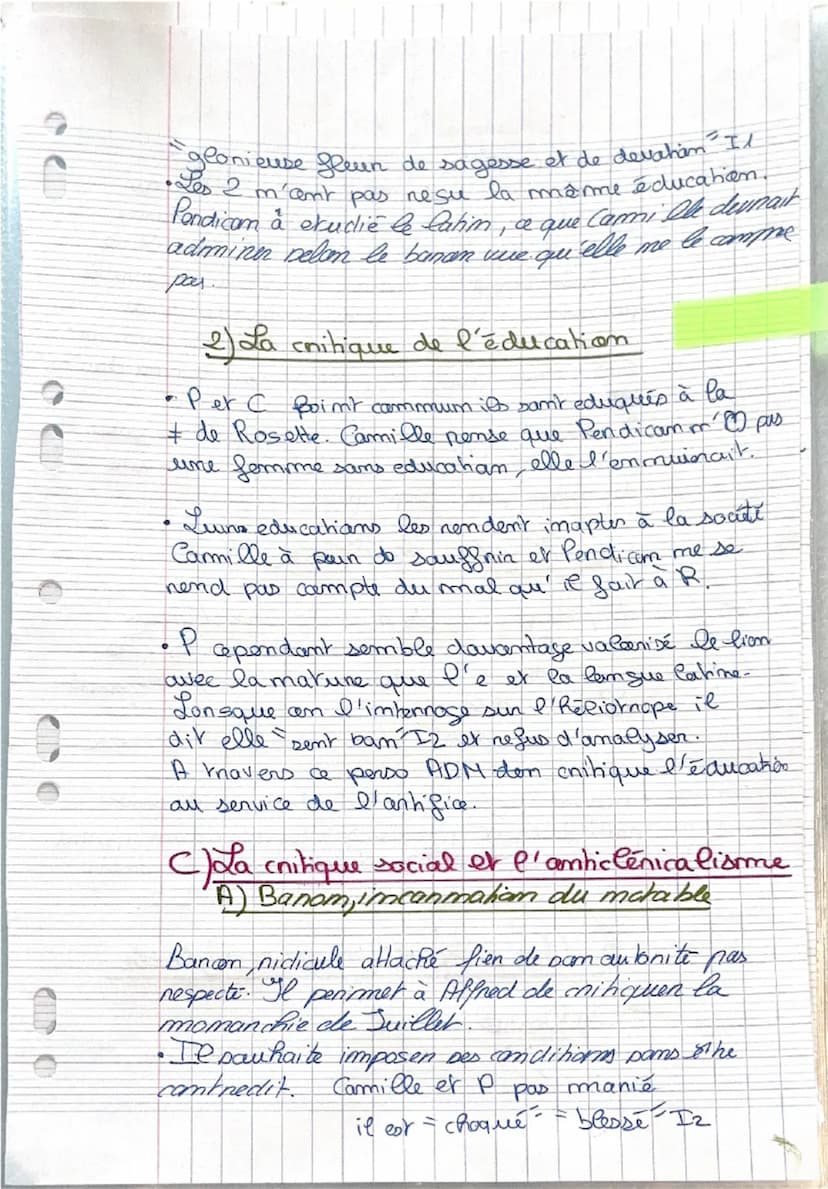 "glorieuse fleur de sagesse et de dévotion" I1
• Les 2 n'ont pas reçu la même éducation.
Perdican à etudié le latin, ce que Camille devrait
admirer selon le baron vue qu'elle ne le compre
pas.
2) La critique de l'éducation
• P et C point commum ils sont eduqués à la
≠ de Rosette. Camille pense que Perdican m'❤ pas
une femme sans education, elle l'ennuirait.
• Leurs educations les rendent inaptes à la société
Camille à peur de souffrir et Perdican ne se
rend pas compte du mal qu'il fait à R.
• P cependant semble davantage valorisé le lien
avec la nature que l'e et la langue latine.
Lorsque on l'interroge sur l'héliotrope il
dit elle "sent bon" I2 et refus d'analyser.
A travers ce perso ADM don critique l'éducation
au service de l'artifice.
C) La critique social et l'anticléricalisme
A) Baron, incarnation du notable
Baron, ridicule attaché fier de son autorité pas
respecté. Il permet à Alfred de critiquer la
monarchie de Juillet.
• Il souhaite imposer ses conditions sans être
contredit. Camille et P pas marié
il est "choqué" "blessé" I2